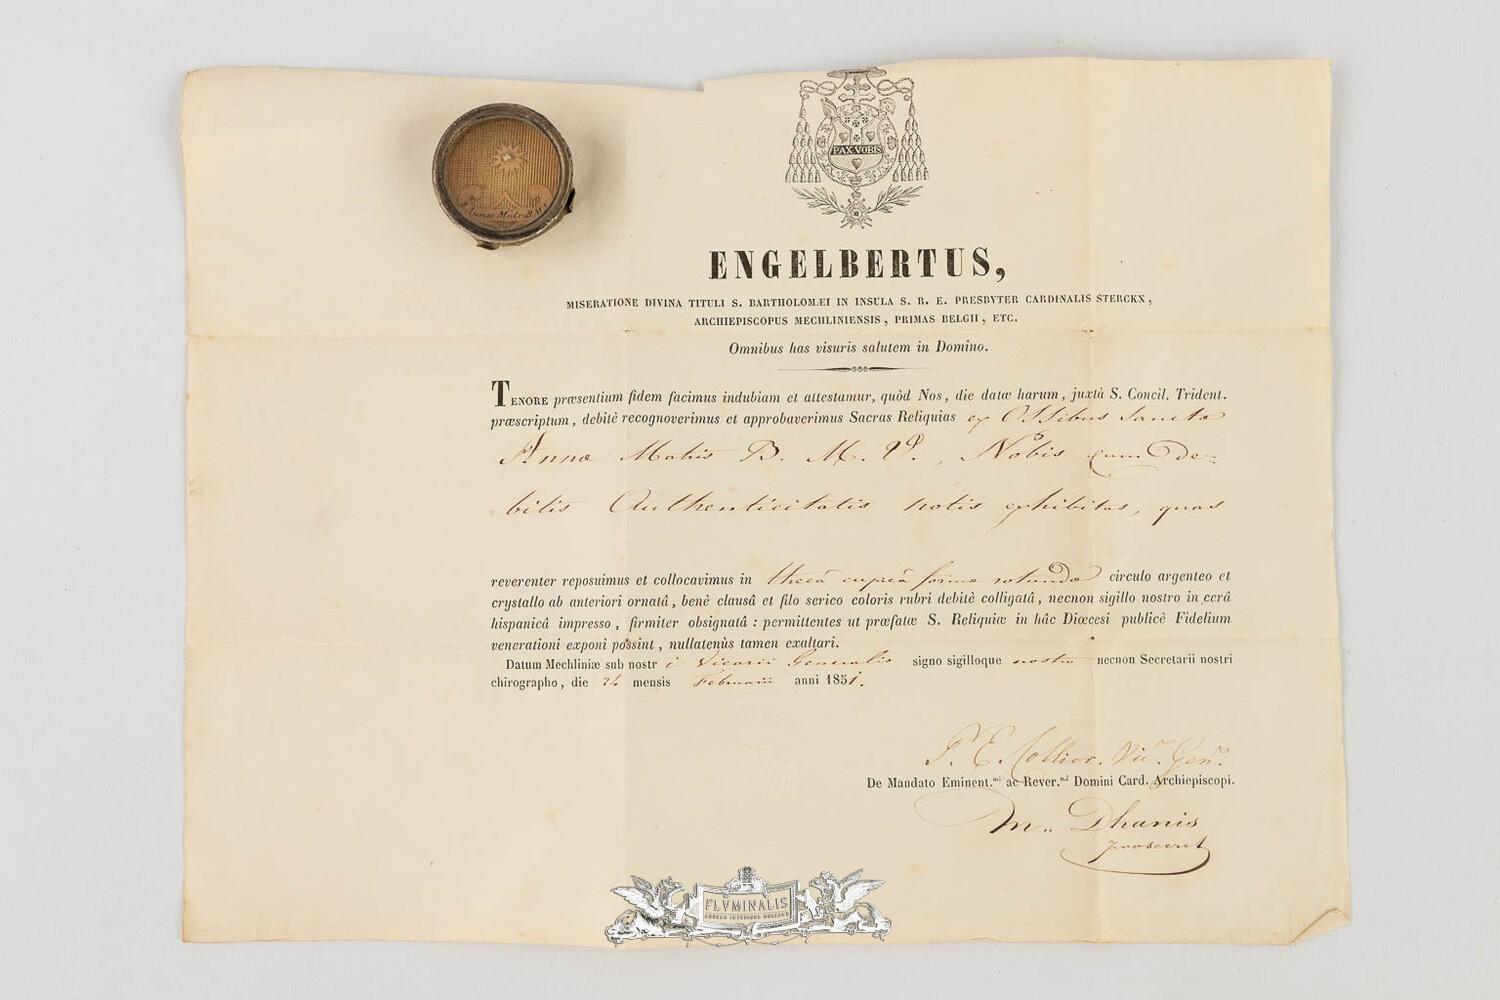 PAX VOBIS
Annæ Matr. B.M.V.
ENGELBERTUS,
MISERATIONE DIVINA TITULI S. BARTHOLOMÆI IN INSULA S. R. E. PRESBYTER CARDINALIS STERCKX,
ARCHIEPISCOPUS MECHLINIENSIS, PRIMAS BELGII, ETC.
Omnibus has visuris salutem in Domino.
TENORE præsentium fidem facimus indubiam et attestamur, quòd Nos, die datæ harum, juxtà S. Concil. Trident.
præscriptum, debitè recognoverimus et approbaverimus Sacras Reliquias ex Ossibus Sanctæ
Annæ Matris B. M. V., Nobis cum De-
-bitis Authenticitatis notis exhibitas, quas
reverenter reposuimus et collocavimus in thecâ cupreâ formæ rotundæ circulo argenteo et
crystallo ab anteriori ornatâ, benè clausâ et filo serico coloris rubri debitè colligatâ, necnon sigillo nostro in cerâ
hispanicâ impresso, firmiter obsignatâ: permittentes ut præfatæ S. Reliquiæ in hâc Diœcesi publicè Fidelium
venerationi exponi possint, nullatenùs tamen exaltari.
Datum Mechliniæ sub nostri Vicarii Generalis signo sigilloque nostro necnon Secretarii nostri
chirographo, die 24 mensis Februarii anni 1851.
P. E. Collier. Vic. Gen.
De Mandato Eminent.mi ac Rever.mi Domini Card. Archiepiscopi.
M. Dhanis
prosecret
FLVMINALIS